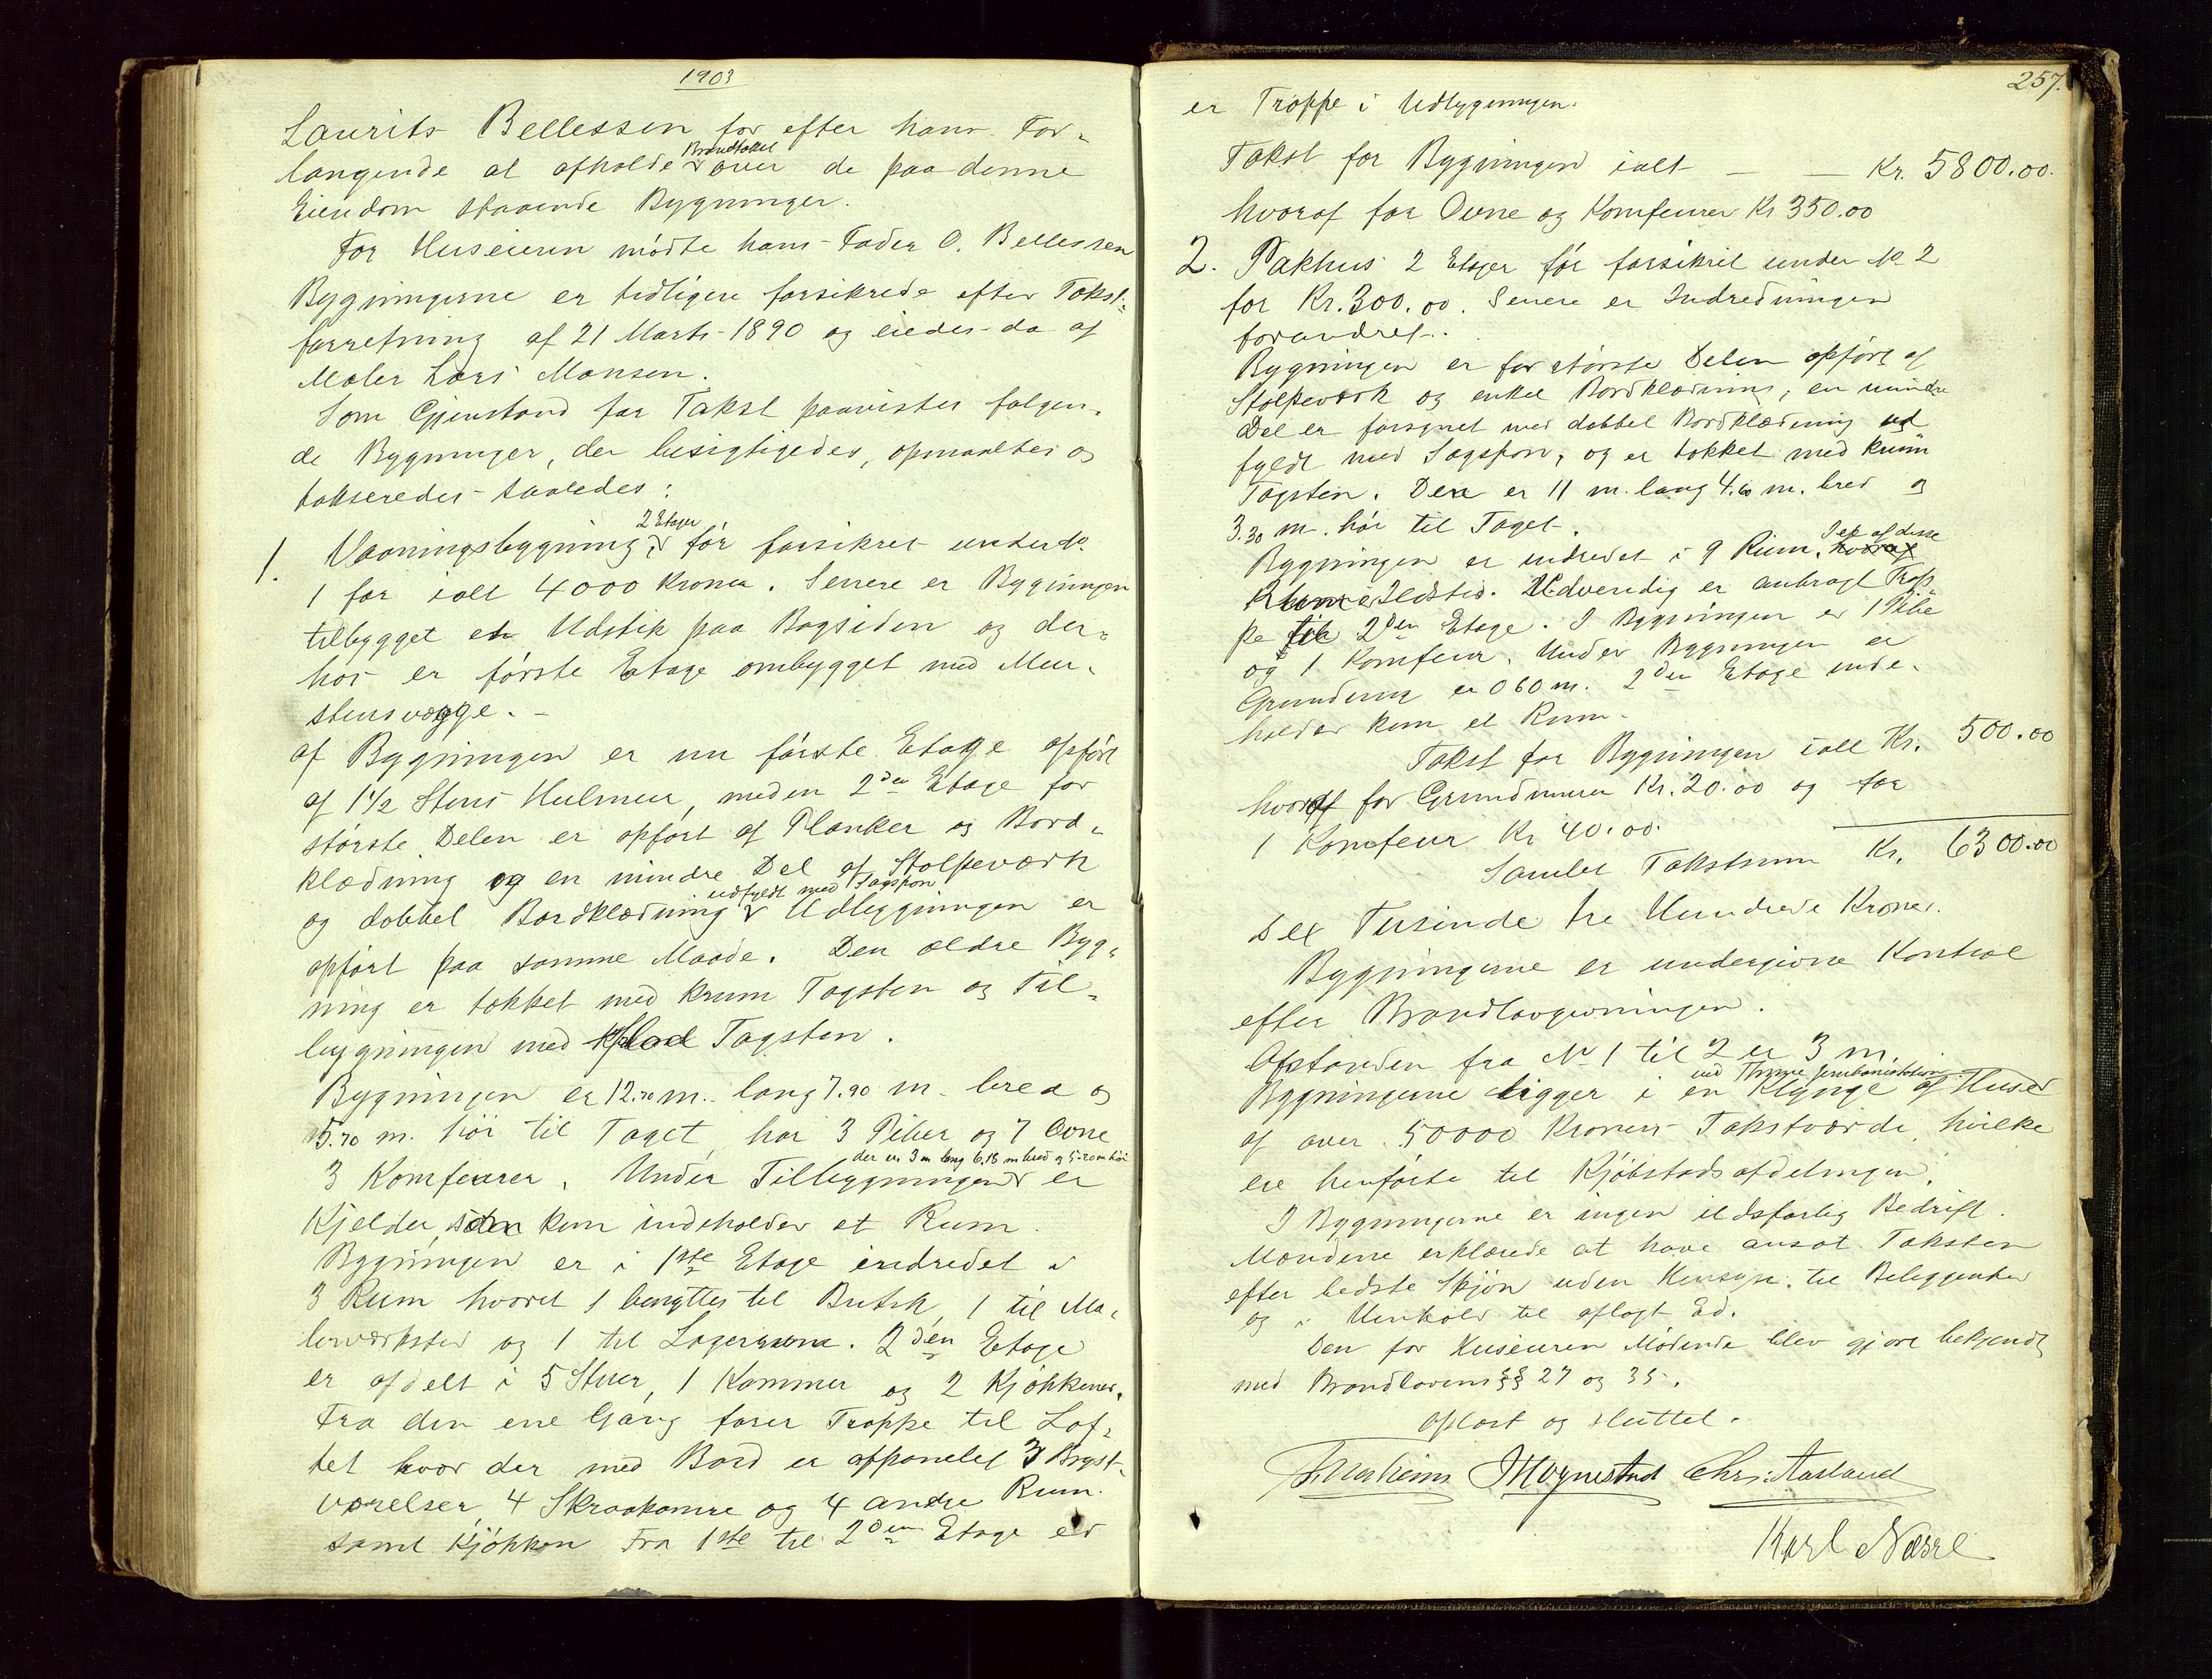 1903
Laurits Bellessen for efter hans For-
langende at afholde Brandtakst over de paa denne
Eiendom staaende Bygninger.
For Huseieren mödte hans Fader O. Bellessen
Bygningerne er tidligere forsikrede efter Takst-
forretning af 21 Marts 1890 og eiedes da af
Maler Lars Monsen.
Som Gjenstand for Takst paavistes følgen-
de Bygninger, der besigtigedes, opmaaltes og
takseredes saaledes:
1. Vaaningsbygning, 2 Etager för forsikret under No
1 for ialt 4000 Kroner. Senere er Bygningen
tilbygget et Udstik paa Bagsiden og der-
hos er förste Etage ombygget med Mur-
stensvægge. –
af Bygningen er nu förste Etage opfört
af 1½ Stens Hulmur, meden 2den Etage for
störste Delen er opfört af Planker og Bord-
klædning og en mindre Del af Stolpeværk
og dobbel Bordklædning udfyldt med Sagspon Udbygningen er
opfört paa samme Maade. Den ældre Byg-
ning er tækket med krum Tagsten og Til-
bygningen med flad Tagsten.
Bygningen er 12.70 m. lang 7.90 m. bred og
5.70 m. höi til Taget, har 3 Piber og 7 Ovne
3 Komfeurer. Under Tilbygningen der er 3 m lang 6.18 m bred og 5.20 m höi er
Kjelder, som kun indeholder et Rum.
Bygningen er i 1ste Etage indredet i
3 Rum hvoraf 1 benyttes til Butik, 1 til Ma-
lerværksted og 1 til Lagerrum. 2den Etage
er afdelt i 5 Stuer, 1 Kammer og 2 Kjökkener.
Fra den ene Gang förer Trappe til Lof-
tet hvor der med Bord er afpanelet 3 Bryst-
værelser, 4 Skraakamre og 4 andre Rum
samt Kjökken Fra 1ste til 2den Etage er
257.
er Trappe i Udbygningen.
Takst for Bygningen ialt — — Kr. 5800.00.
hvoraf for Ovne og Komfeurer Kr 350.00
2. Pakhus 2 Etager för forsikret under No 2
for Kr. 300.00. Senere er Indredningen
forandret.
Bygningen er for störste Delen opfört af
Stolpeværk og enkel Bordklædning, en mindre
Del er forsynet med dobbel Bordklædning ud
fyldt med Sagspon, og er tækket med krum
Tagsten. Den er 11 m. lang 4.60 m. bred og
3.30 m. höi til Taget.
Bygningen er indredet i 9 Rum. I et af disse
Rum er Ildsted. Udvendig er anbragt Trap
pe til 2den Etage. I Bygningen er 1 Pibe
og 1 Komfeur. Under Bygningen er
Grundmur er 0 60 m. 2den Etage inde-
holder kun et Rum.
Takst for Bygningen ialt Kr. 500.00
hvoraf for Grundmuren Kr. 20.00 og for
1 Komfeur Kr 40.00.
Samlet Takstsum Kr. 6300.00
Sex Tusinde tre Hundrede Kroner.
Bygningerne er undergivne Kontrol
efter Brandlovgivningen.
Afstanden fra No 1 til 2 er 3 m.
Bygningerne ligger i en Klynge af Huse ved Jernbanestation
af over 50000 Kroners Takstværdi, hvilke
ere henförte til Kjöbstadsafdelingen.
I Bygningerne er ingen ildsfarlig Bedrift.
Mændene erklærede at have ansat Taksten
efter bedste Skjön uden Hensyn til Beliggenhed
og i Henhold til aflagt Ed.
Den for Huseieren Mödende blev gjort bekjendt
med Brandlovens §§ 27 og 35.
Oplæst og sluttet.
Chr: Aasland
Karl Næsse